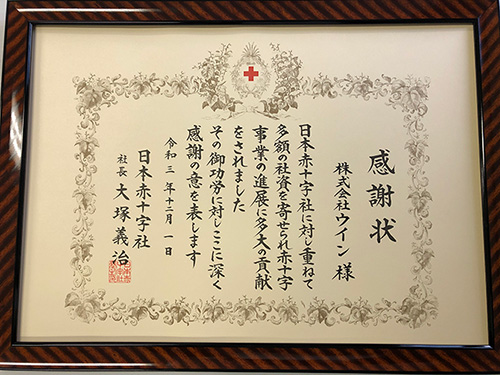 感謝状
株式会社ウイン 様
日本赤十字社に対し重ねて
多額の社資を寄せられ赤十字
事業の進展に多大の貢献
をされました
その御功労に対しここに深く
感謝の意を表します
令和三年十二月一日
日本赤十字社
社長 大塚義治